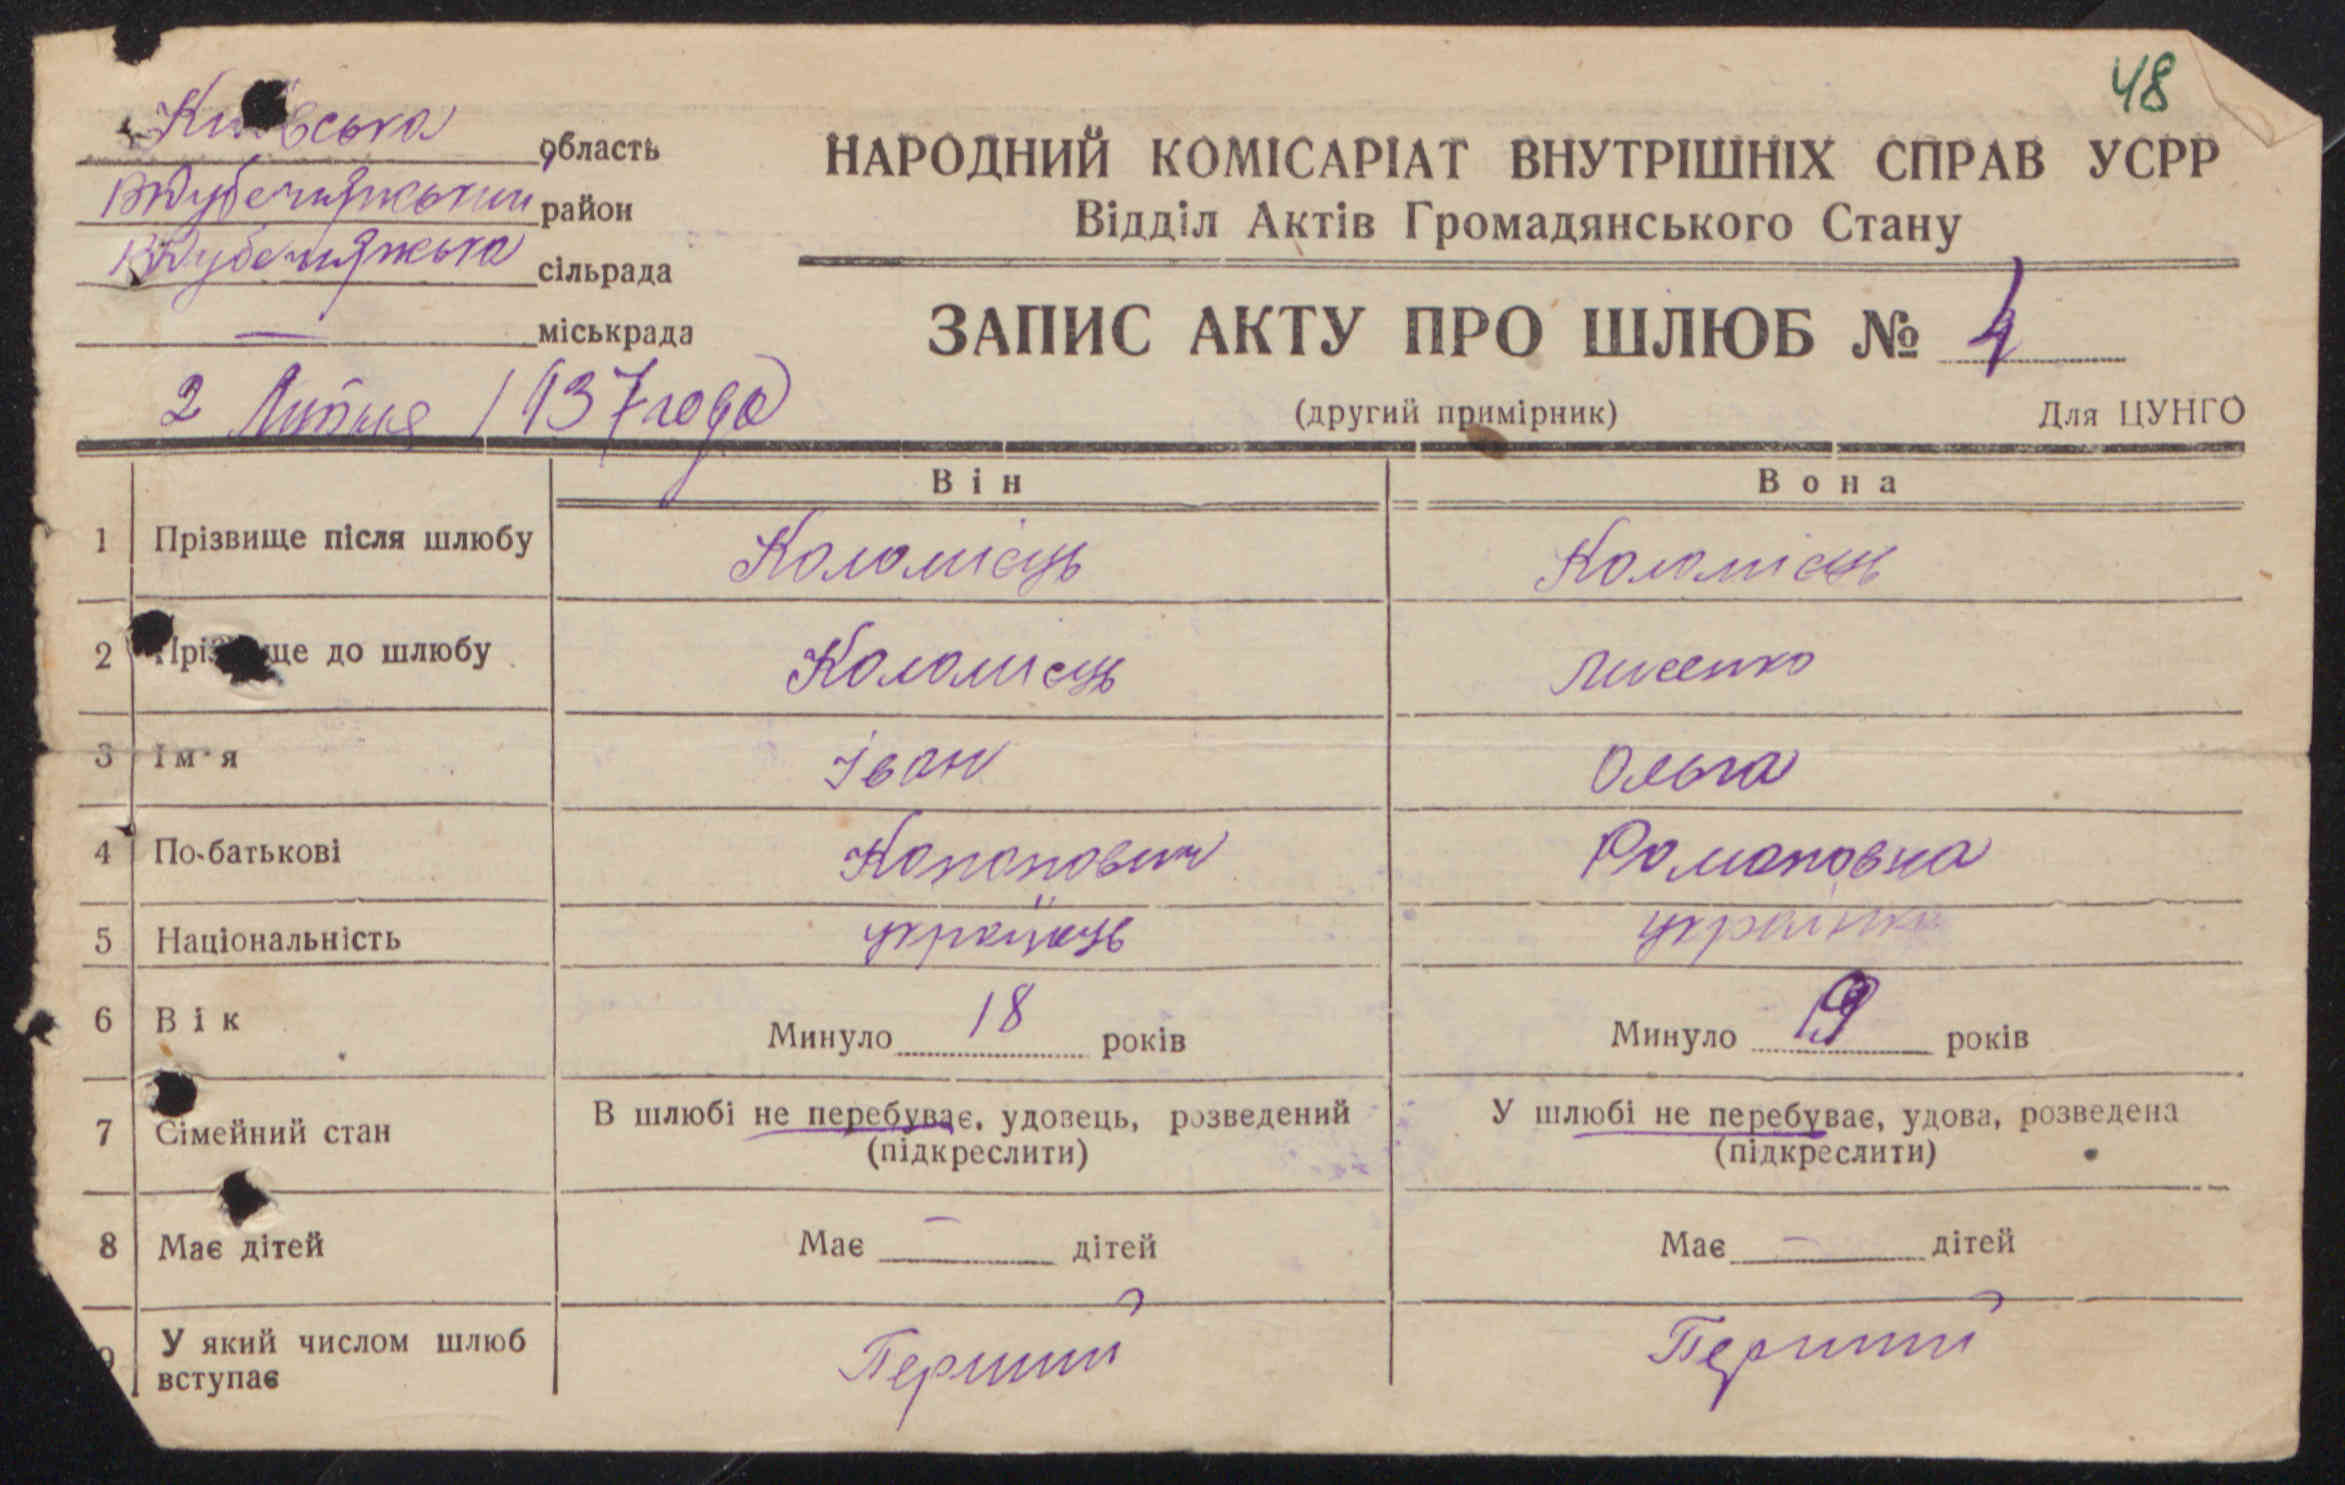 48
Київська область
В Дубечнянський район
В Дубечнянська сільрада
— міськрада
НАРОДНИЙ КОМІСАРІАТ ВНУТРІШНІХ СПРАВ УСРР
Відділ Актів Громадянського Стану
ЗАПИС АКТУ ПРО ШЛЮБ № 4
2 Липня 1937 года
(другий примірник) Для ЦУНГО
Він Вона
1 Прізвище після шлюбу Коломієць Коломієць
2 Прізвище до шлюбу Коломієць Лисенко
3 Ім'я Іван Ольга
4 По-батькові Кононович Романовна
5 Національність українець українка
6 Вік Минуло 18 років Минуло 19 років
7 Сімейний стан В шлюбі не перебуває, удовець, розведений У шлюбі не перебуває, удова, розведена
(підкреслити) (підкреслити)
8 Має дітей Має — дітей Має — дітей
9 У який числом шлюб Перший Перший
вступає